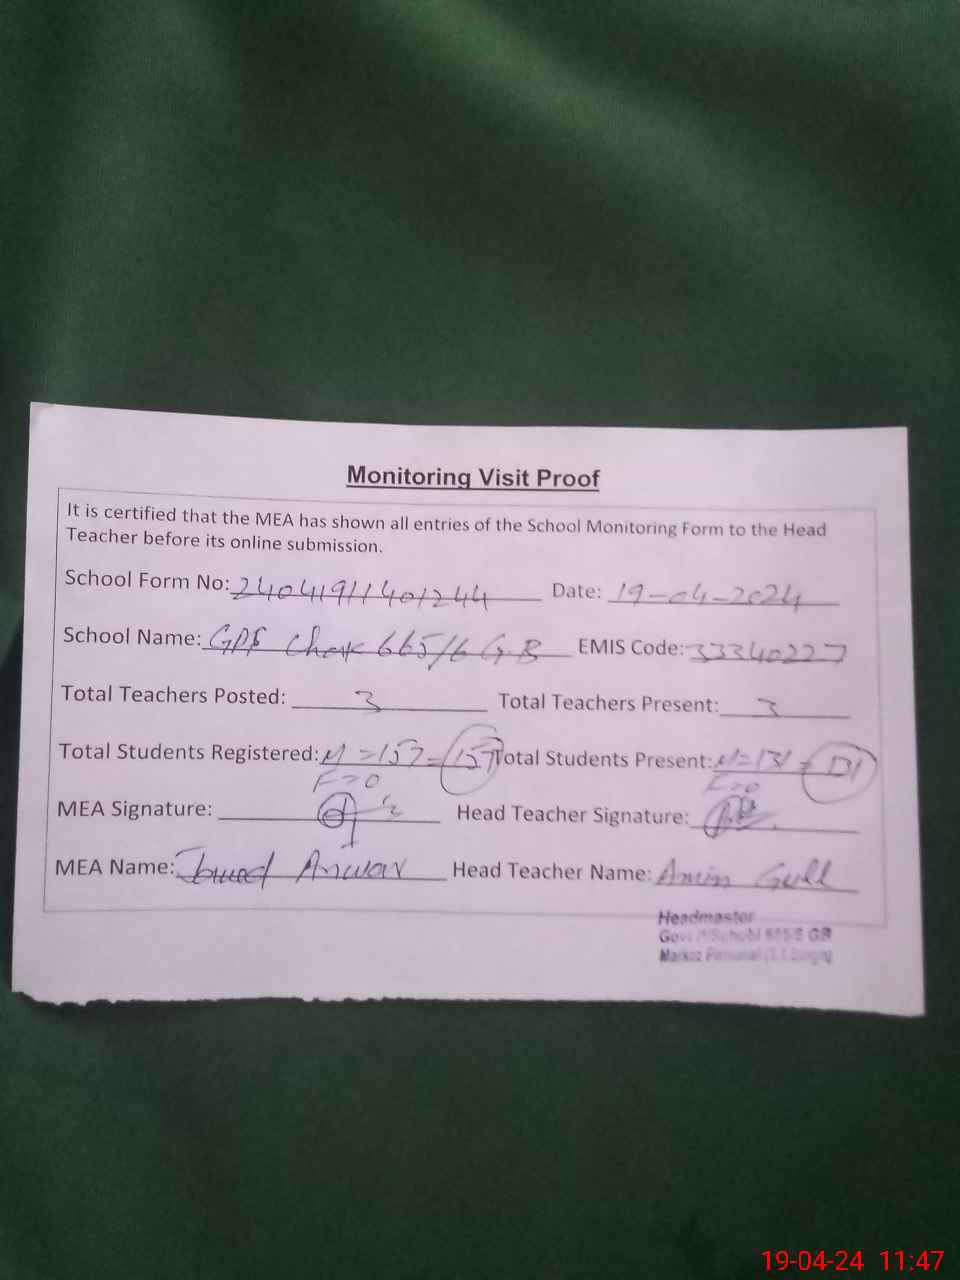 Monitoring Visit Proof
It is certified that the MEA has shown all entries of the School Monitoring Form to the Head
Teacher before its online submission.
School Form No: 24041911401244 Date: 19-04-2024
School Name: GPS Chak 665/6 G.B EMIS Code: 33340227
Total Teachers Posted: 3 Total Teachers Present: 3
Total Students Registered: M=157=157 Total Students Present: M=131=131
F=0 F=0
MEA Signature: Head Teacher Signature:
MEA Name: Anwar Head Teacher Name: Gull
Headmaster
GB
Markaz
19-04-24 11:47